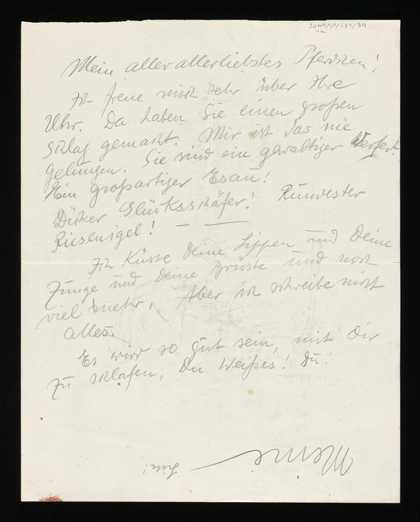 Mein allerallerliebstes Pferdchen!
Ich freue mich sehr über Ihre
Uhr. Da haben Sie einen großen
Schlag gemacht. Mir ist das nie
gelungen. Sie sind ein gewaltiger
Mein großartiger Esau!
Dicker Glücksschäfer!
Riesenigel! — —
Ich küsse Deine Lippen und Deine
Zunge und Deine Brüste und noch
viel mehr. Aber ich schreibe nicht
alles.
Es wird so gut sein, mit Dir
zu schlafen, Du Weißes! Du!
Meine